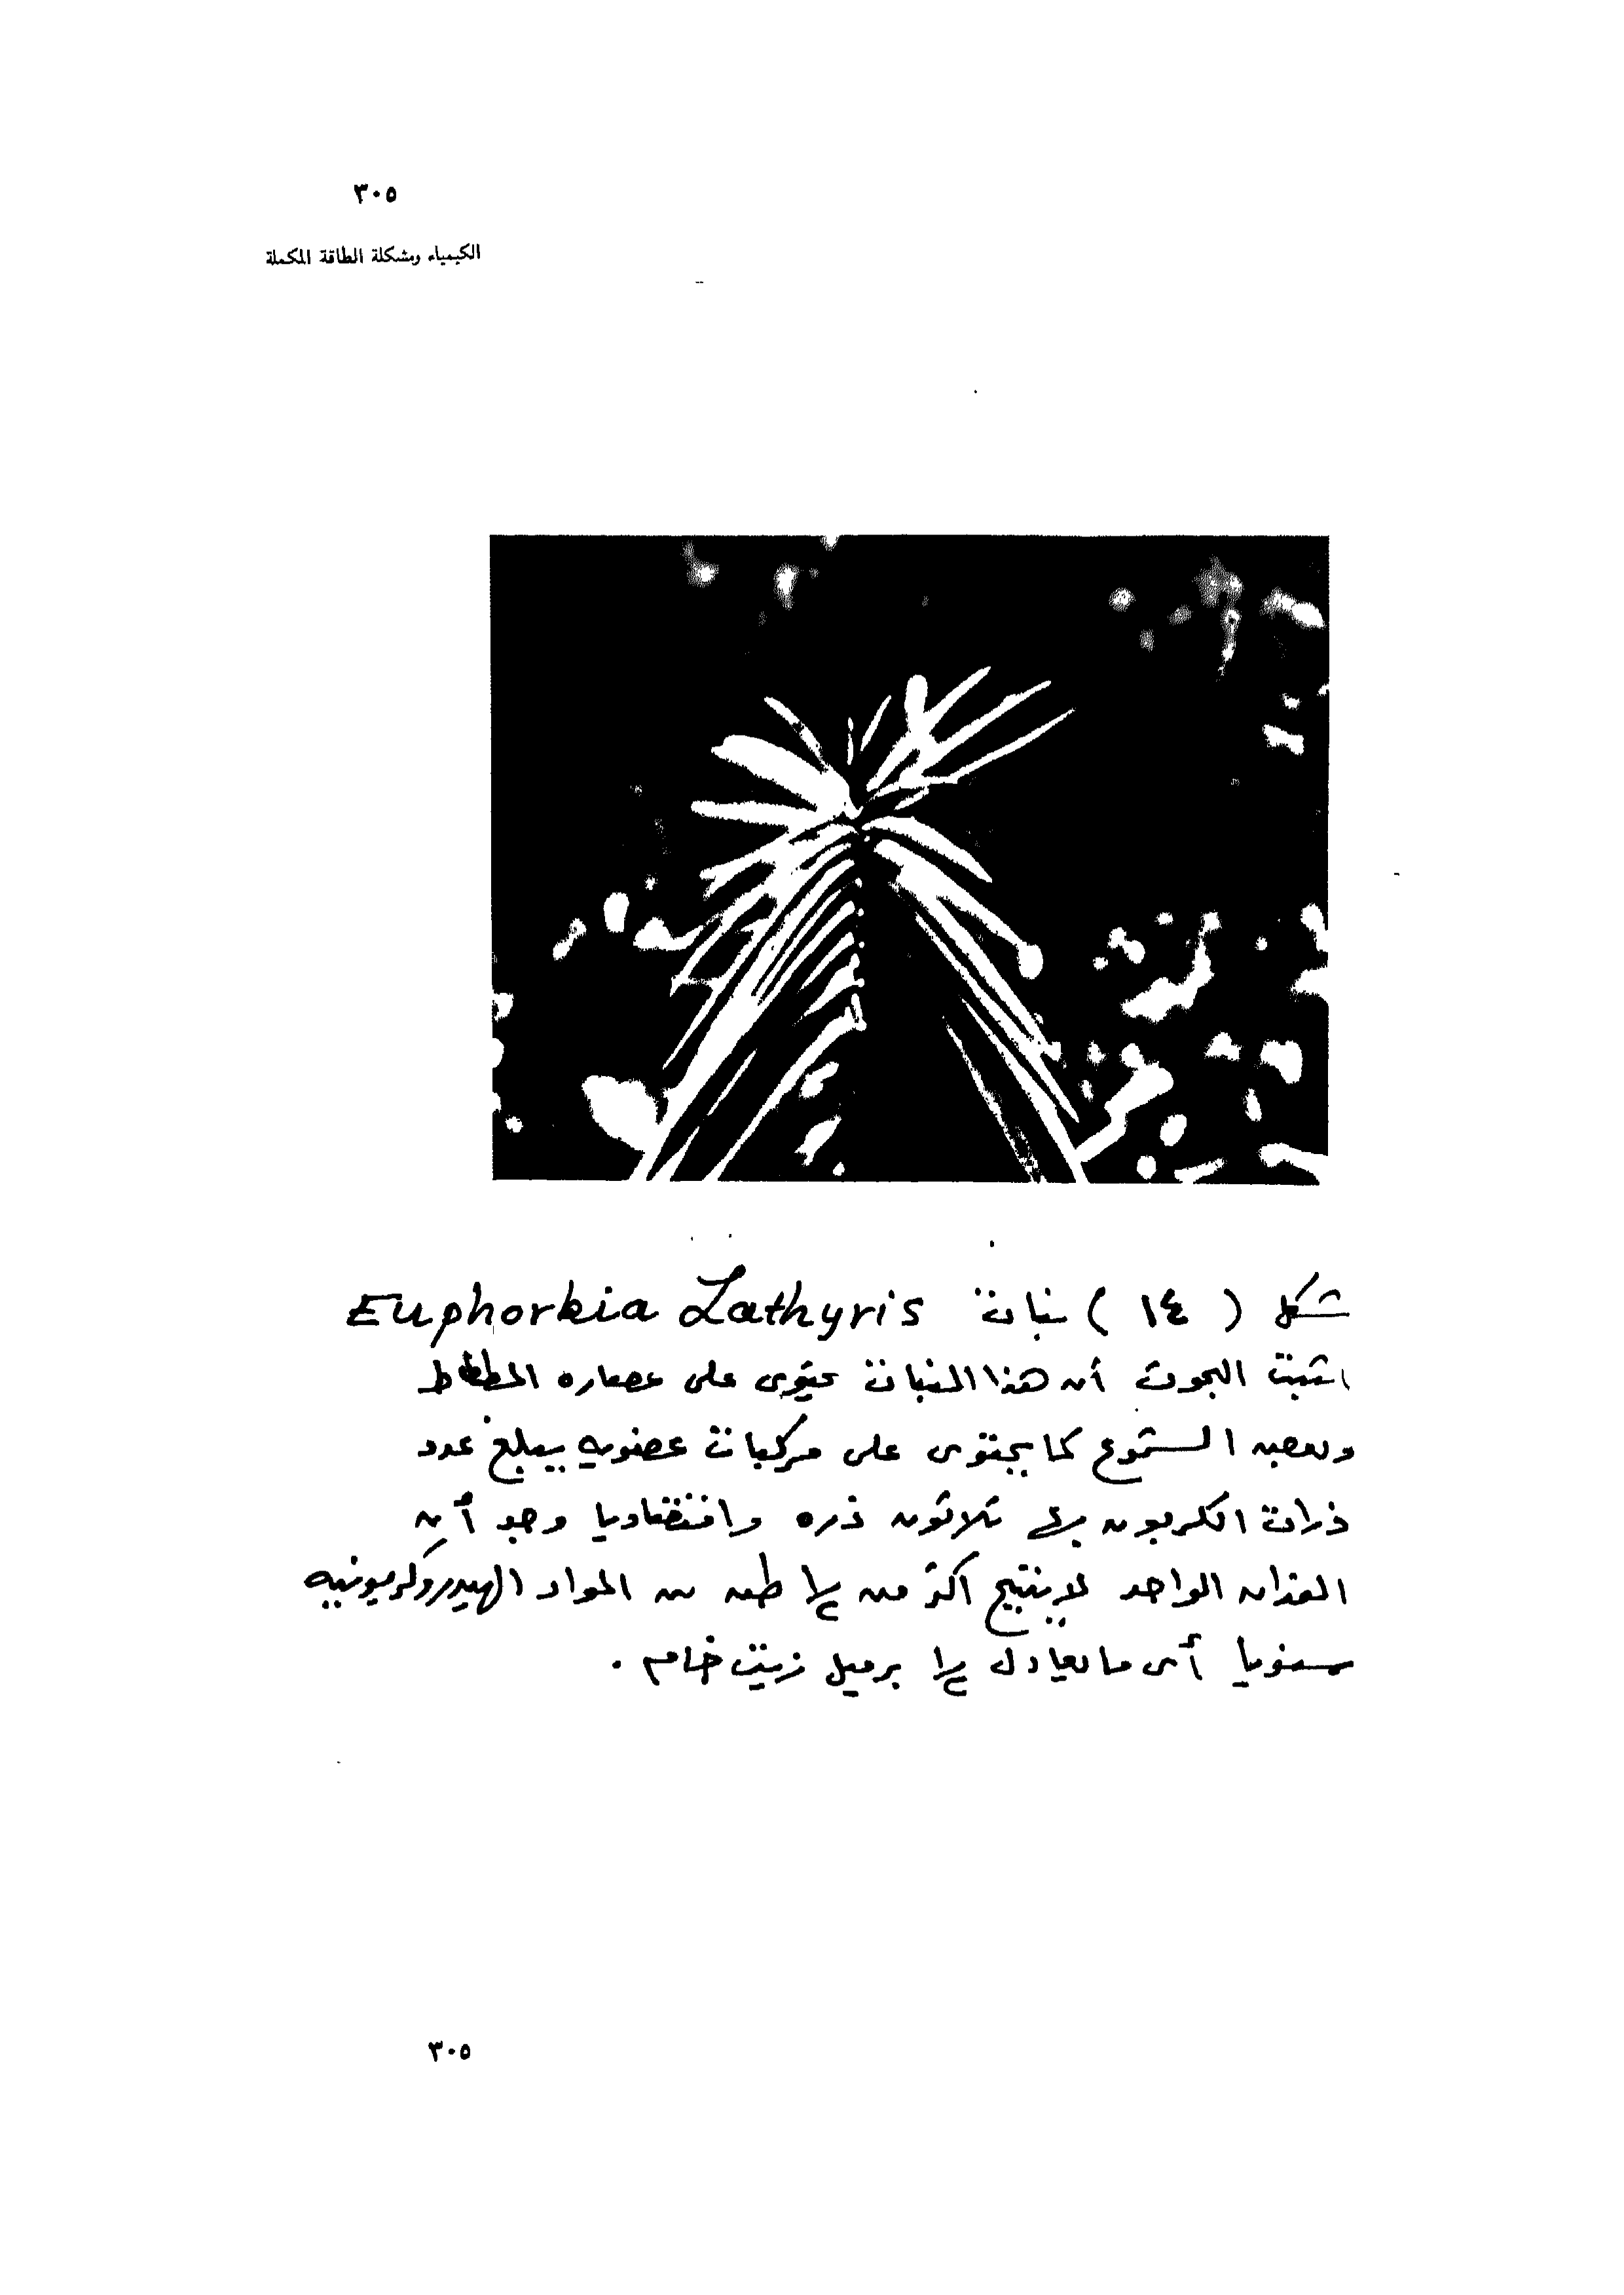 ٣٠٥
الكيمياء ومشكلة الطاقة المكملة
شكل ( ١٤ ) نبات Euphorbia Lathyris
اثبتت البحوث أن هذا النبات يحتوى على عصاره المطاط
وبعض الشموع كما يحتوى على مركبات عضويه يبلغ عدد
ذرات الكربون بها ثلاثون ذره واقتصاديا وجد أن
الفدان الواحد ينتج اكثر من طن من المواد الهيدروكربونيه
سنويا أى ما يعادل برميل زيت خام .
٣٠٥